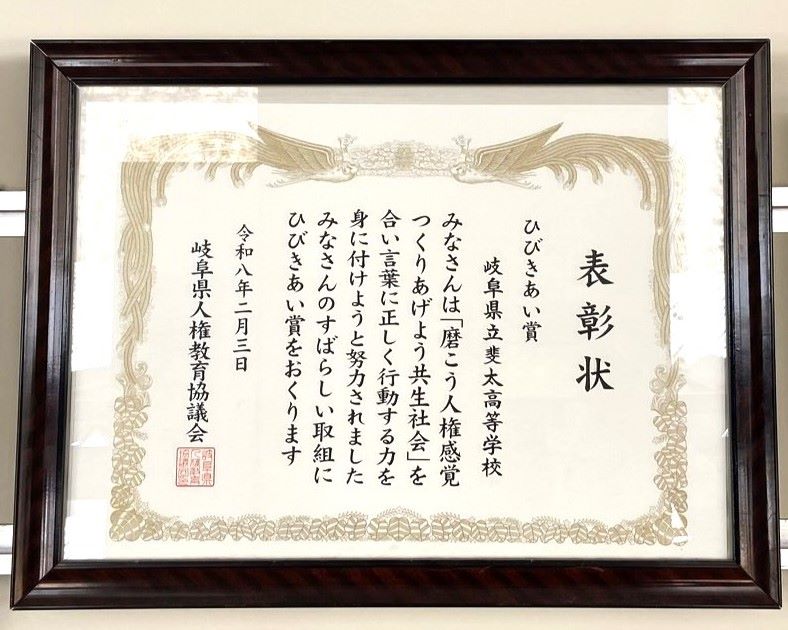 表彰状
ひびきあい賞
岐阜県立斐太高等学校
みなさんは「磨こう人権感覚
つくりあげよう共生社会」を
合い言葉に正しく行動する力を
身に付けようと努力されました
みなさんのすばらしい取組に
ひびきあい賞をおくります
令和八年二月三日
岐阜県人権教育協議会